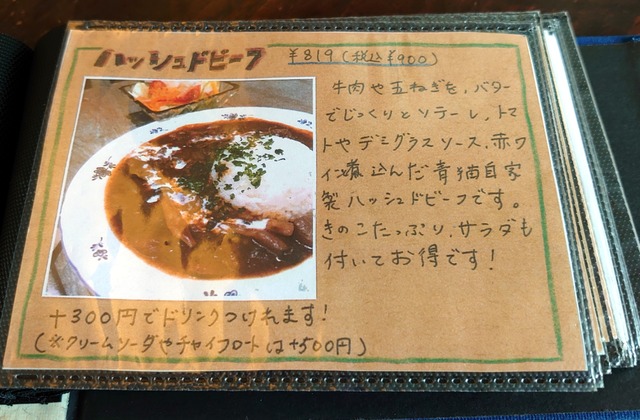 ハッシュドビーフ ¥819(税込¥900)
牛肉や玉ねぎを、バター
でじっくりとソテーし、トマ
トやデミグラスソース、赤ワ
イン煮込んだ青猫自家
製ハッシュドビーフです。
きのこたっぷり、サラダも
付いてお得です!
+300円でドリンクつけれます!
(※クリームソーダやチャイフロートは+500円)